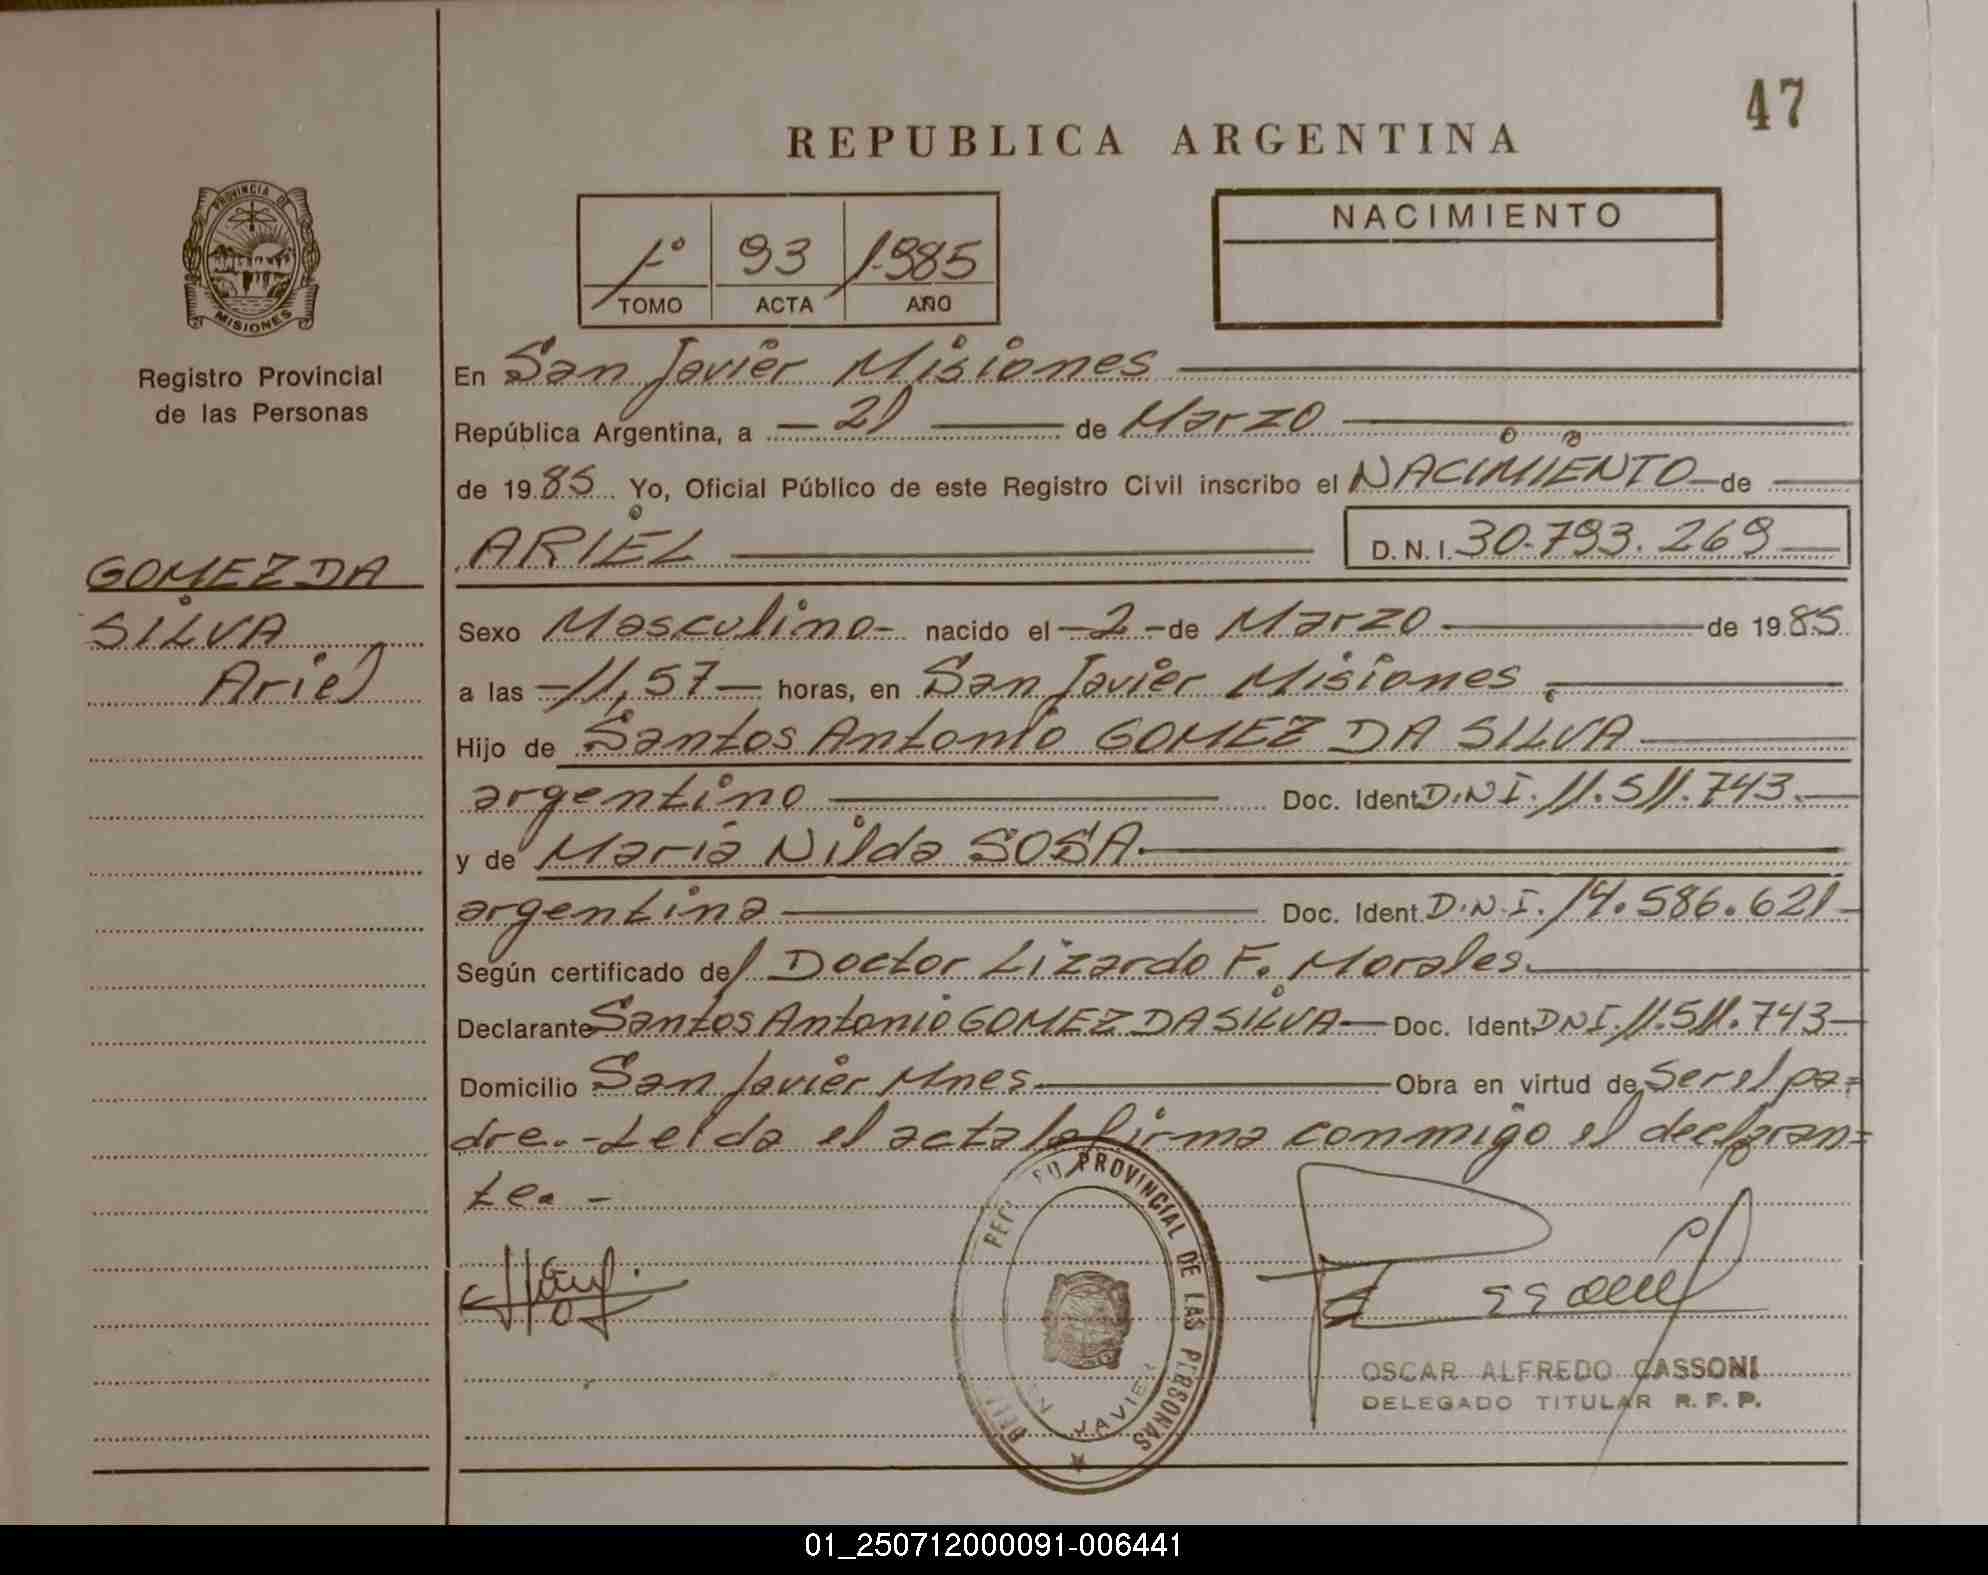 47
REPUBLICA ARGENTINA
PROVINCIA DE
MISIONES
Registro Provincial
de las Personas
1º 93 1.985
TOMO ACTA AÑO
NACIMIENTO
En San Javier Misiones
República Argentina, a - 21 de Marzo
de 1985 Yo, Oficial Público de este Registro Civil inscribo el NACIMIENTO de
ARIEL D.N.I. 30.793.269
GOMEZ DA
SILVA
Ariel
Sexo Masculino- nacido el -2- de Marzo de 1985
a las -11,57- horas, en San Javier Misiones
Hijo de Santos Antonio GOMEZ DA SILVA
argentino Doc. Ident. D.N.I. 11.511.743.-
y de María Nilda SOSA.
argentina Doc. Ident. D.N.I. 14.586.621-
Según certificado del Doctor Lizardo F. Morales.
Declarante Santos Antonio GOMEZ DA SILVA- Doc. Ident. DNI. 11.511.743-
Domicilio San Javier Mnes. Obra en virtud de Ser el pa=
dre.-Leida el acta la firma conmigo el declaran=
te.-
PROVINCIAL DE LAS PERSONAS
JAVIER
OSCAR ALFREDO CASSONI
DELEGADO TITULAR R.P.P.
01_250712000091-006441